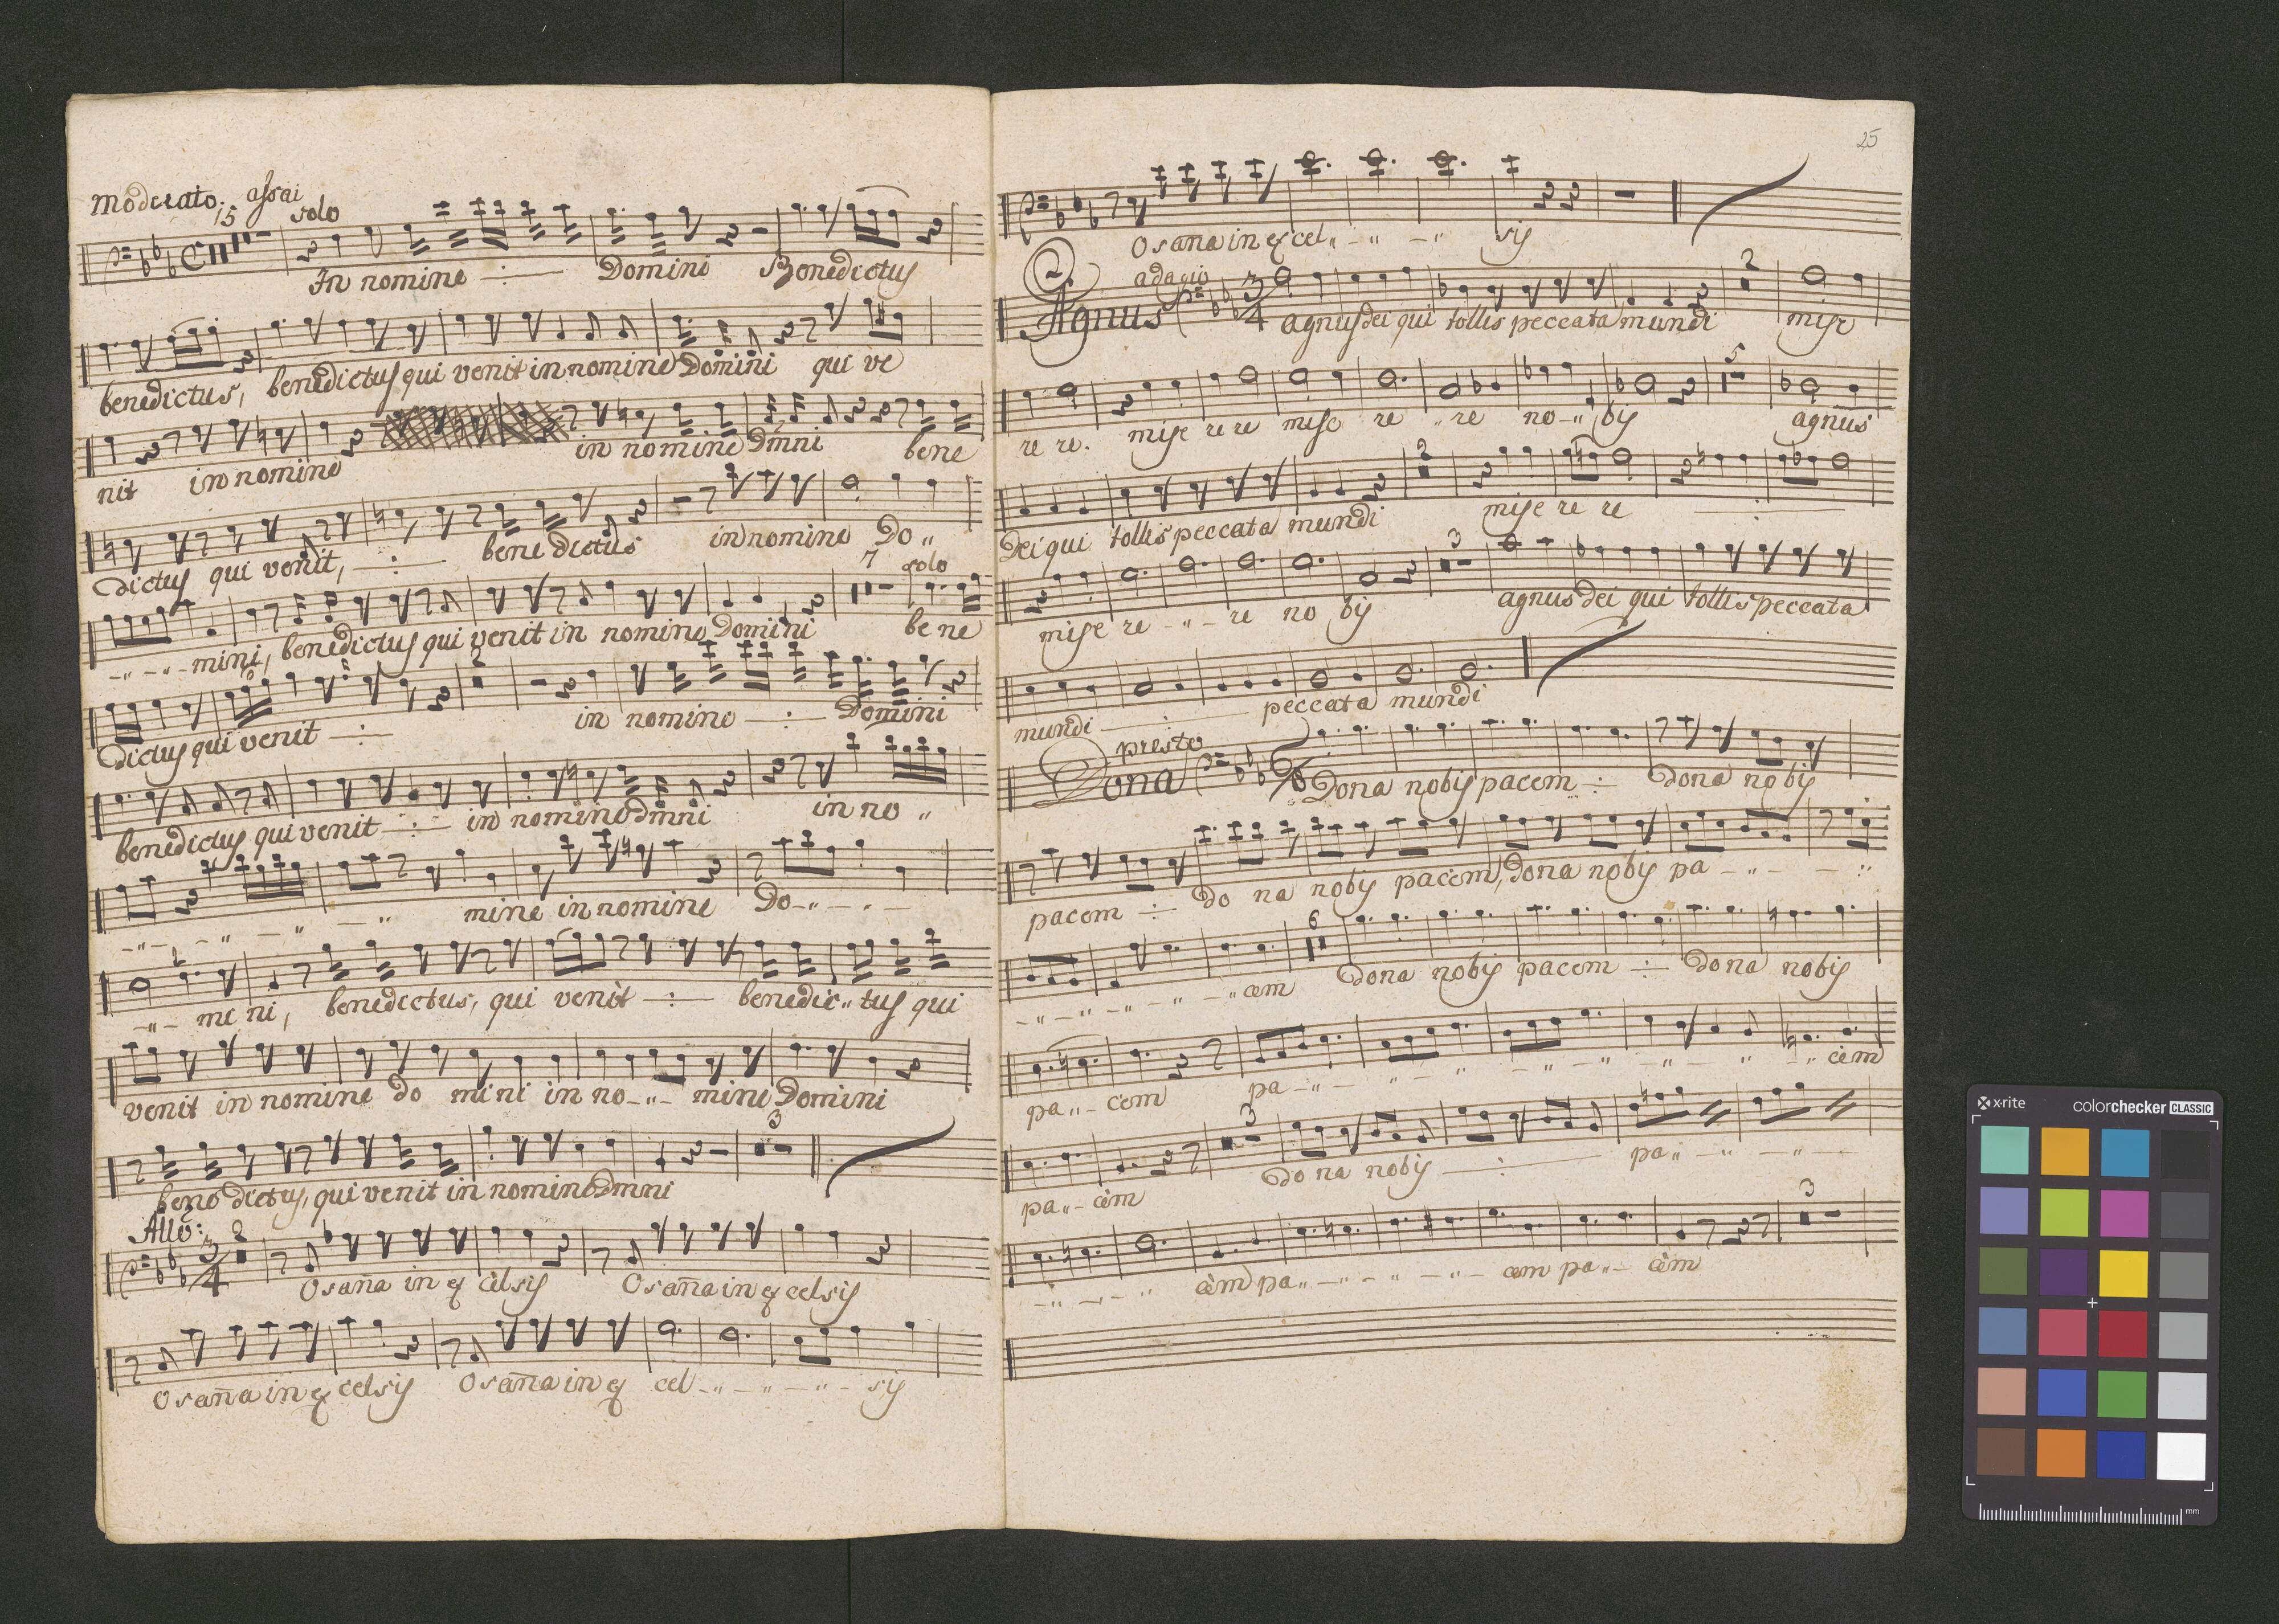 Moderato. assai
15 solo
In nomine -:- Domini Benedictus
benedictus, benedictus qui venit in nomine Domini qui ve
nit in nomine in nomine Dmni bene
dictus qui venit, -:- benedictus in nomine Do „
7 solo
-„-„- mini, benedictus qui venit in nomine Domini bene
2
dictus qui venit -:- in nomine -:- Domini
benedictus qui venit -:- in nomine Dmni in no „
-„- - „ - „ - „ mine in nomine Do-„- - -
-„- mi ni, benedictus, qui venit -:- benedic„tus qui
venit in nomine do mini in no-„- mine Domini
3
benedictus, qui venit in nomine Dmni
Allo: 3/4 2
Osana in ex celsis Osana in ex celsis
Osana in ex celsis Osana in ex cel-„-„-„- sis
25
Osana in ex cel„-„-„ sis
Agnus adagio 3/4 2
agnus dei qui tollis peccata mundi mise
5
re re. mise re re mise re „re no-„bis agnus
2
Dei qui tollis peccata mundi mise re re -:-
3
mise re -„- re no bis agnus dei qui tollis peccata
mundi -:- peccata mundi
Dona presto 6/8
Dona nobis pacem -:- dona nobis
pacem -:- do na nobis pacem, dona nobis pa -„- - „
6
-„-„-„-„-„cem Dona nobis pacem -:- dona nobis
pa„-cem pa-„- „-„ -„-„ -„- „ -„cem
3
pa„-cem Dona nobis -:- pa„-„ -„-
3
-„-„-„ cem pa„-„-„-„- cem pa„- cem
x-rite colorchecker CLASSIC
mm